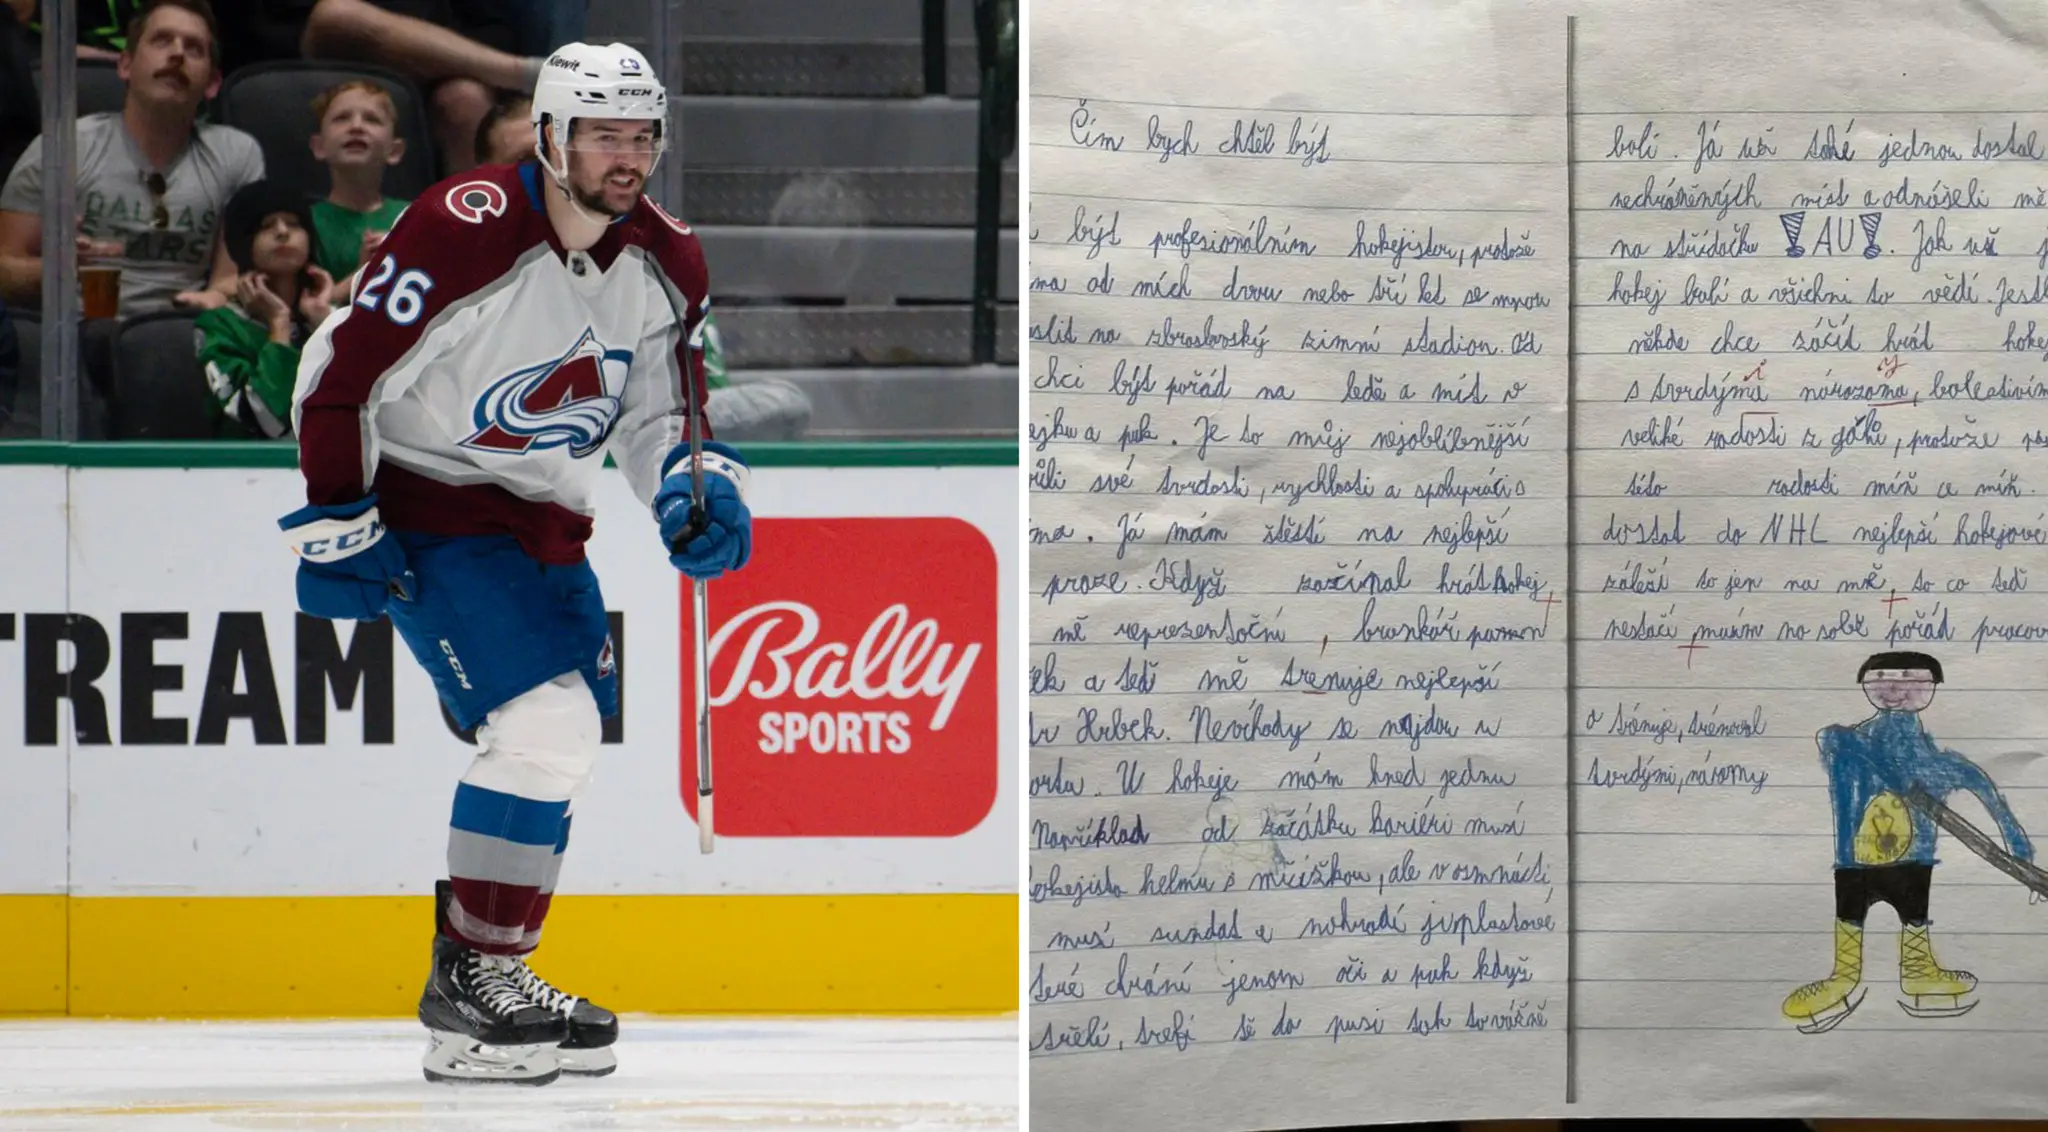 Kiewit
26
CCM
DALLAS
STARS
26
A
CCM
CCM
TREAM
Bally
SPORTS
Čím bych chtěl být
být profesionálním hokejistou, protože
ma od mích dvou nebo tří let se mnou
na zbraslavský zimní stadion. Od
chci být pořád na ledě a mít v
ejku a puk. Je to můj nejoblíbnější
své tvrdosti, rychlosti a spolupráci s
ma. Já mám štěstí na nejlepší
praze. Když začínal hrát hokej,
mě reprezentační, brankář paman
ek a teď mě trenuje nejlepší
Hrbek. Nevíhody se najdou u
ortu. V hokeje mám hned jednu
Například od začátku kariéri musí
hokejista helmu s mřížkou, ale v osmnácti,
musí sundat a nahradí ji plastové
teré chrání jenom oči a puk když
střelí, trefí tě do pusi tak to vážně
bolí. Já už také jednou dostal
nechráněných míst a odnášeli mě
na střídačku !AU!. Jak už j
hokej bolí a všichni to vědí. Jestl
někde chce záčíd hrád hoke
i y
s tvrdýma nárazama, bolestivím
veliké radosti z gólů, protože
této radosti míň a míň.
dostat do NHL nejlepší hokejové
záleží to jen na mě, to co teď
nestačí, musím na sobě pořád pracov
a trénuje, trénoval
tvrdými, nárazy